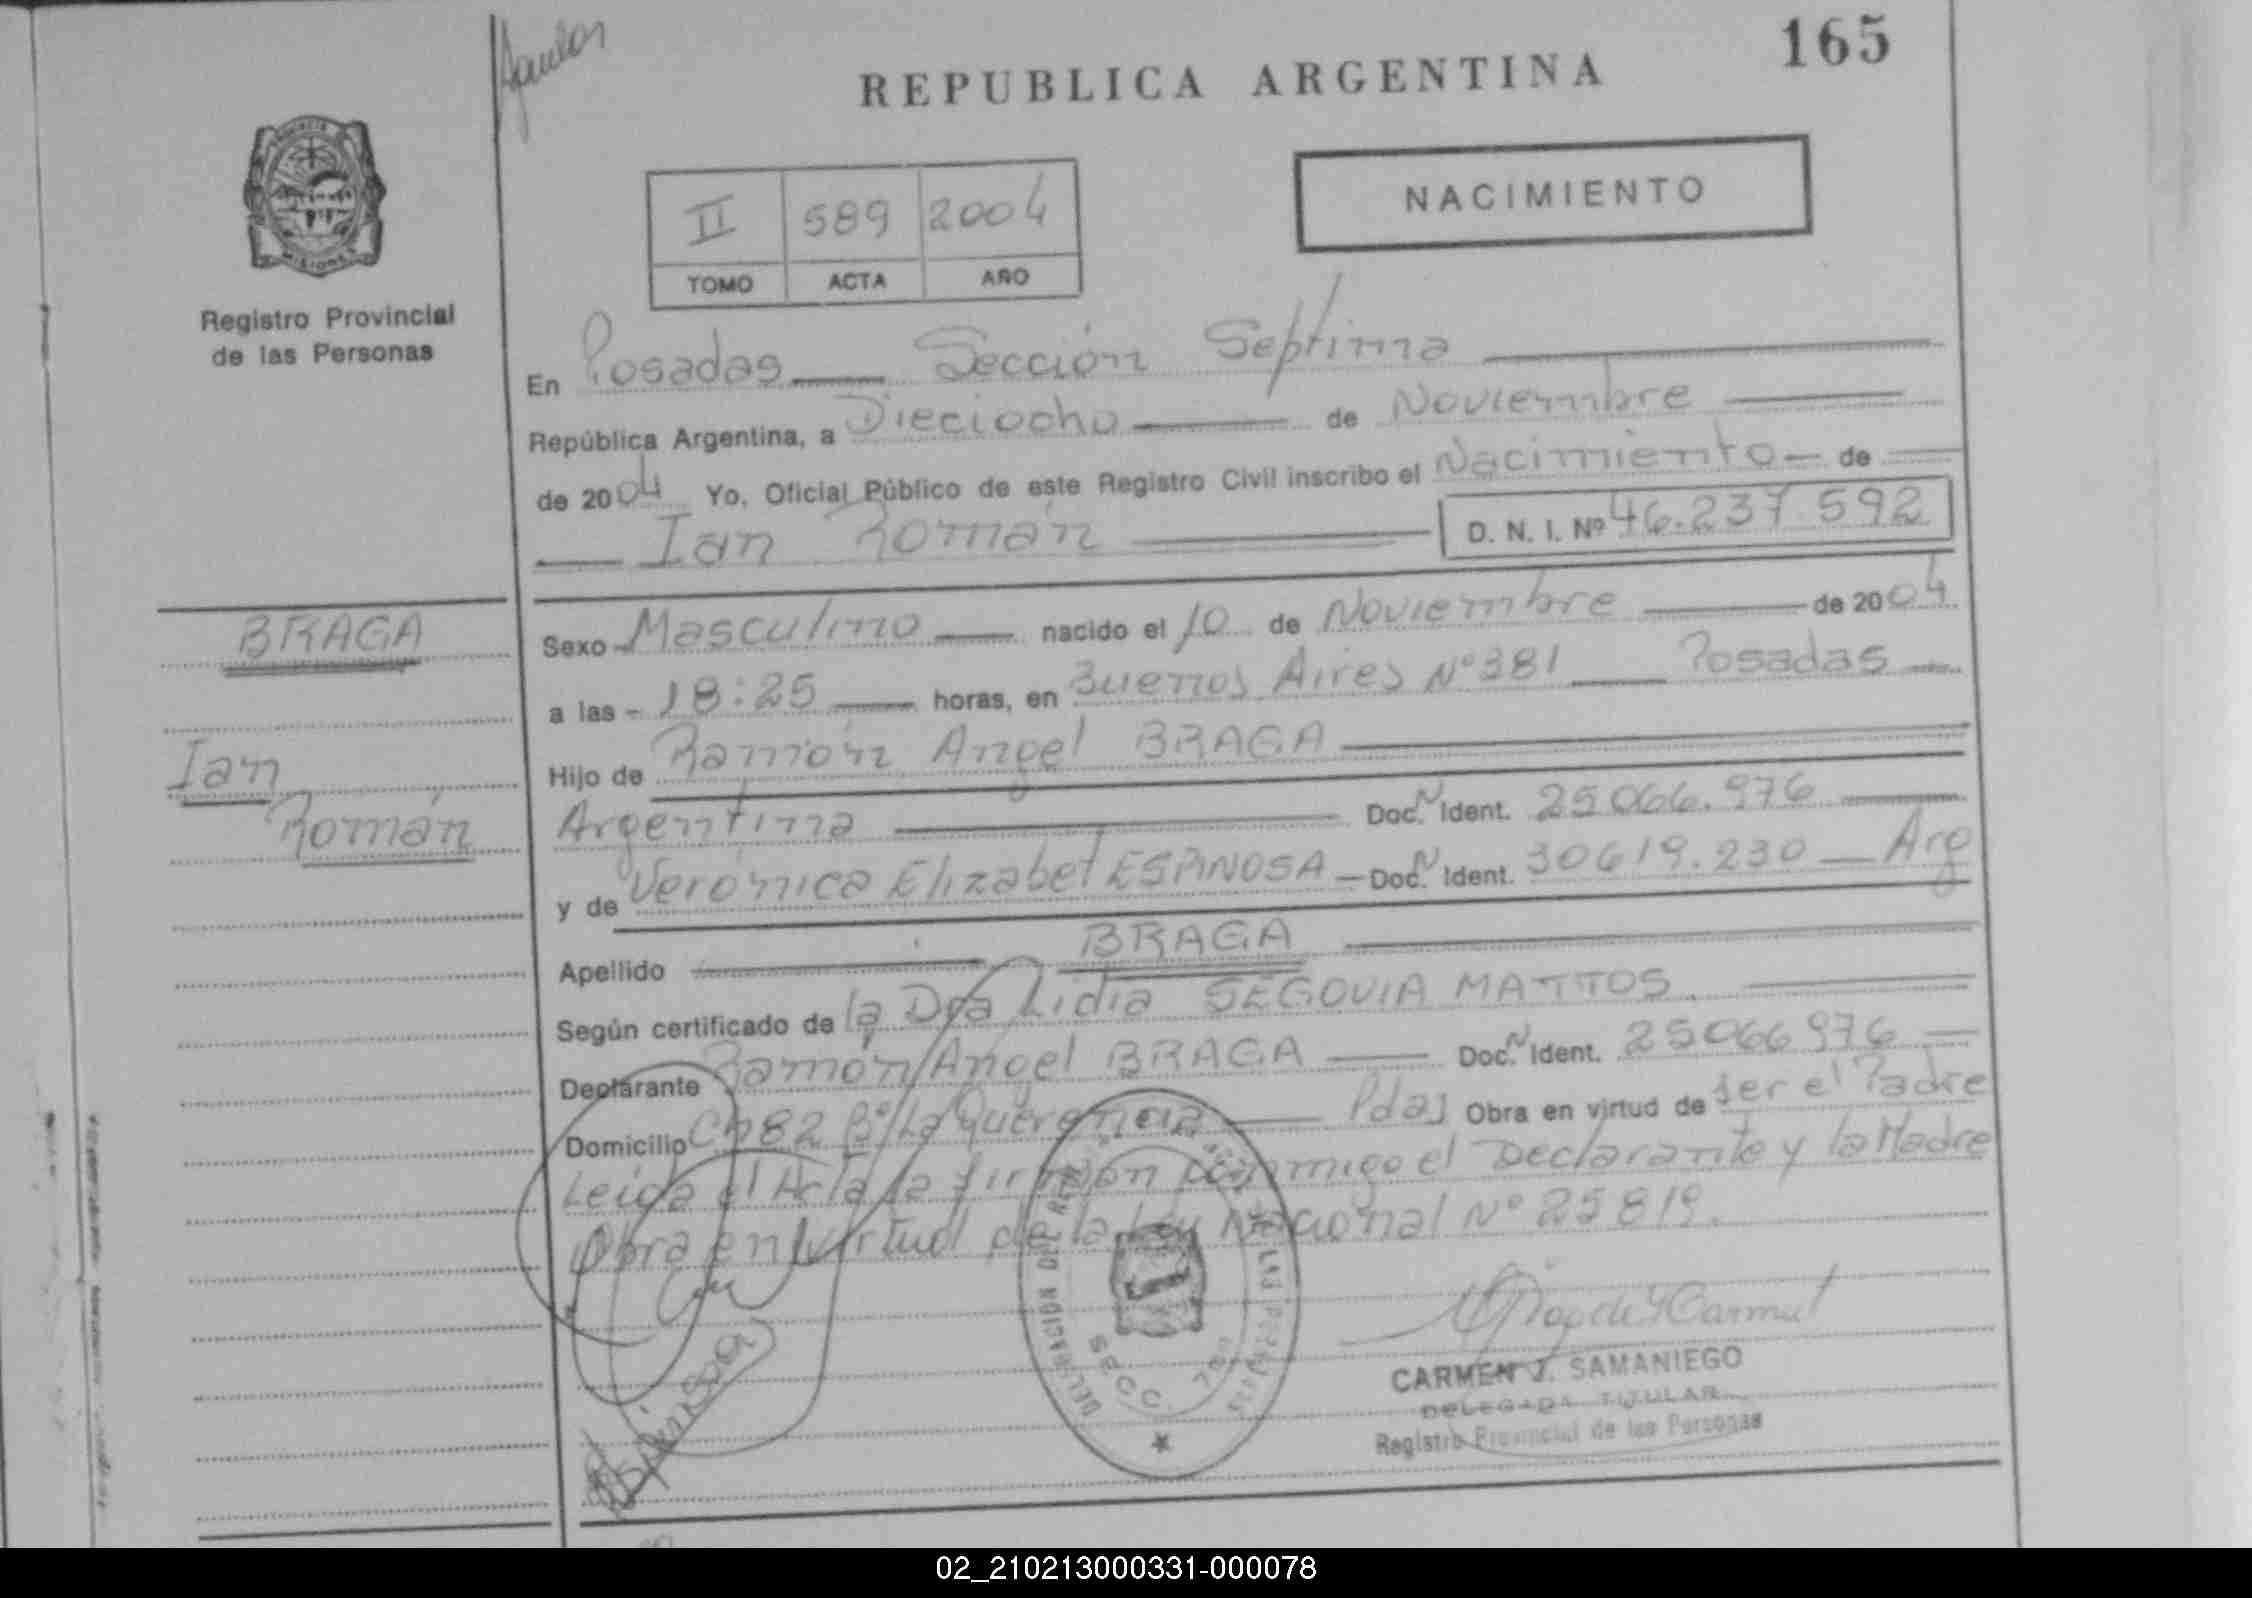 165
REPUBLICA ARGENTINA
NACIMIENTO
II 589 2004
TOMO ACTA AÑO
MISIONES
Registro Provincial
de las Personas
En Posadas Sección Septima
República Argentina, a Dieciocho de Noviembre
de 2004 Yo, Oficial Público de este Registro Civil inscribo el Nacimiento de
Ian Román D. N. I. Nº 46.237.592
BRAGA
Ian
Román
Sexo Masculino nacido el 10 de Noviembre de 2004
a las 18:25 horas, en Buenos Aires Nº 381 Posadas
Hijo de Ramón Angel BRAGA
Argentina Doc. N Ident. 25066.976
y de Verónica Elizabet ESPINOSA Doc. N Ident. 30619.230 Arg
Apellido BRAGA
Según certificado de la Dra Lidia SEGOVIA MATTOS.
Declarante Ramón Angel BRAGA Doc. N Ident. 25066976
Domicilio Ch 82 Bº La Querencia Pdas Obra en virtud de ser el Padre
Leida el Acta la firman conmigo el Declarante y la Madre
Obra en virtud de la Ley Nacional Nº 25819.
SECC. 7
CARMEN J. SAMANIEGO
DELEGADA TITULAR
Registro Provincial de las Personas
Espinosa
02_210213000331-000078